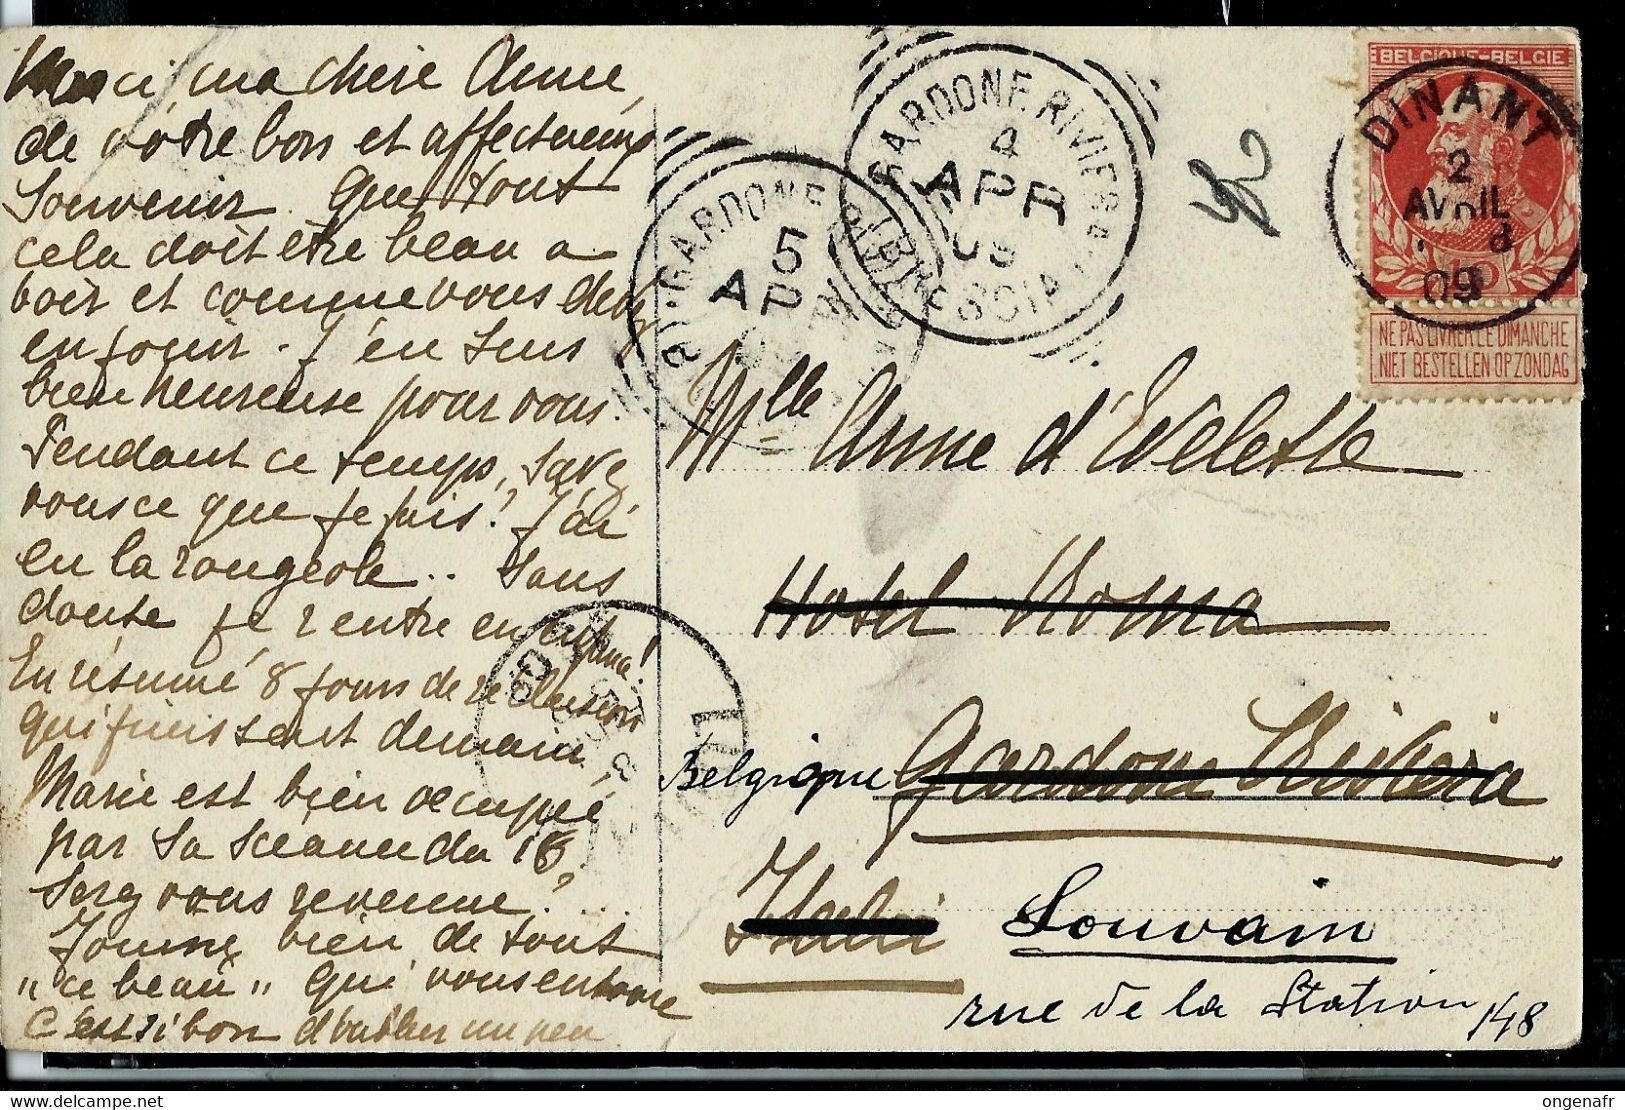 Merci, ma chère Anne,
de votre bon et affectueux
Souvenir. Que tout
cela doit être beau a
voir et comme vous devez
en jouir. J'en suis
bien heureuse pour vous.
Pendant ce temps, savez
vous ce que je fais? J'ai
eu la rougeole.. Sans
doute je rentre en enfance!
En résumé 8 jours de reclusion
qui finissent demain,
Marie est bien occupée
par sa séance du 18,
Serez vous revenue? ...
Jouissez bien de tout
"ce beau" qui vous entoure
C'est si bon d'oublier un peu.
BELGIQUE-BELGIE
10
NE PAS LIVRER LE DIMANCHE
NIET BESTELLEN OP ZONDAG
DINANT
2
AVRIL
09
GARDONE RIVIERA
BRESCIA
4
APR
09
GARDONE
5
APR
Mlle Anne d'Evelette
Hotel Roma
Belgique Gardone Riviera
Italie Louvain
rue de la Station 148
ongenafr